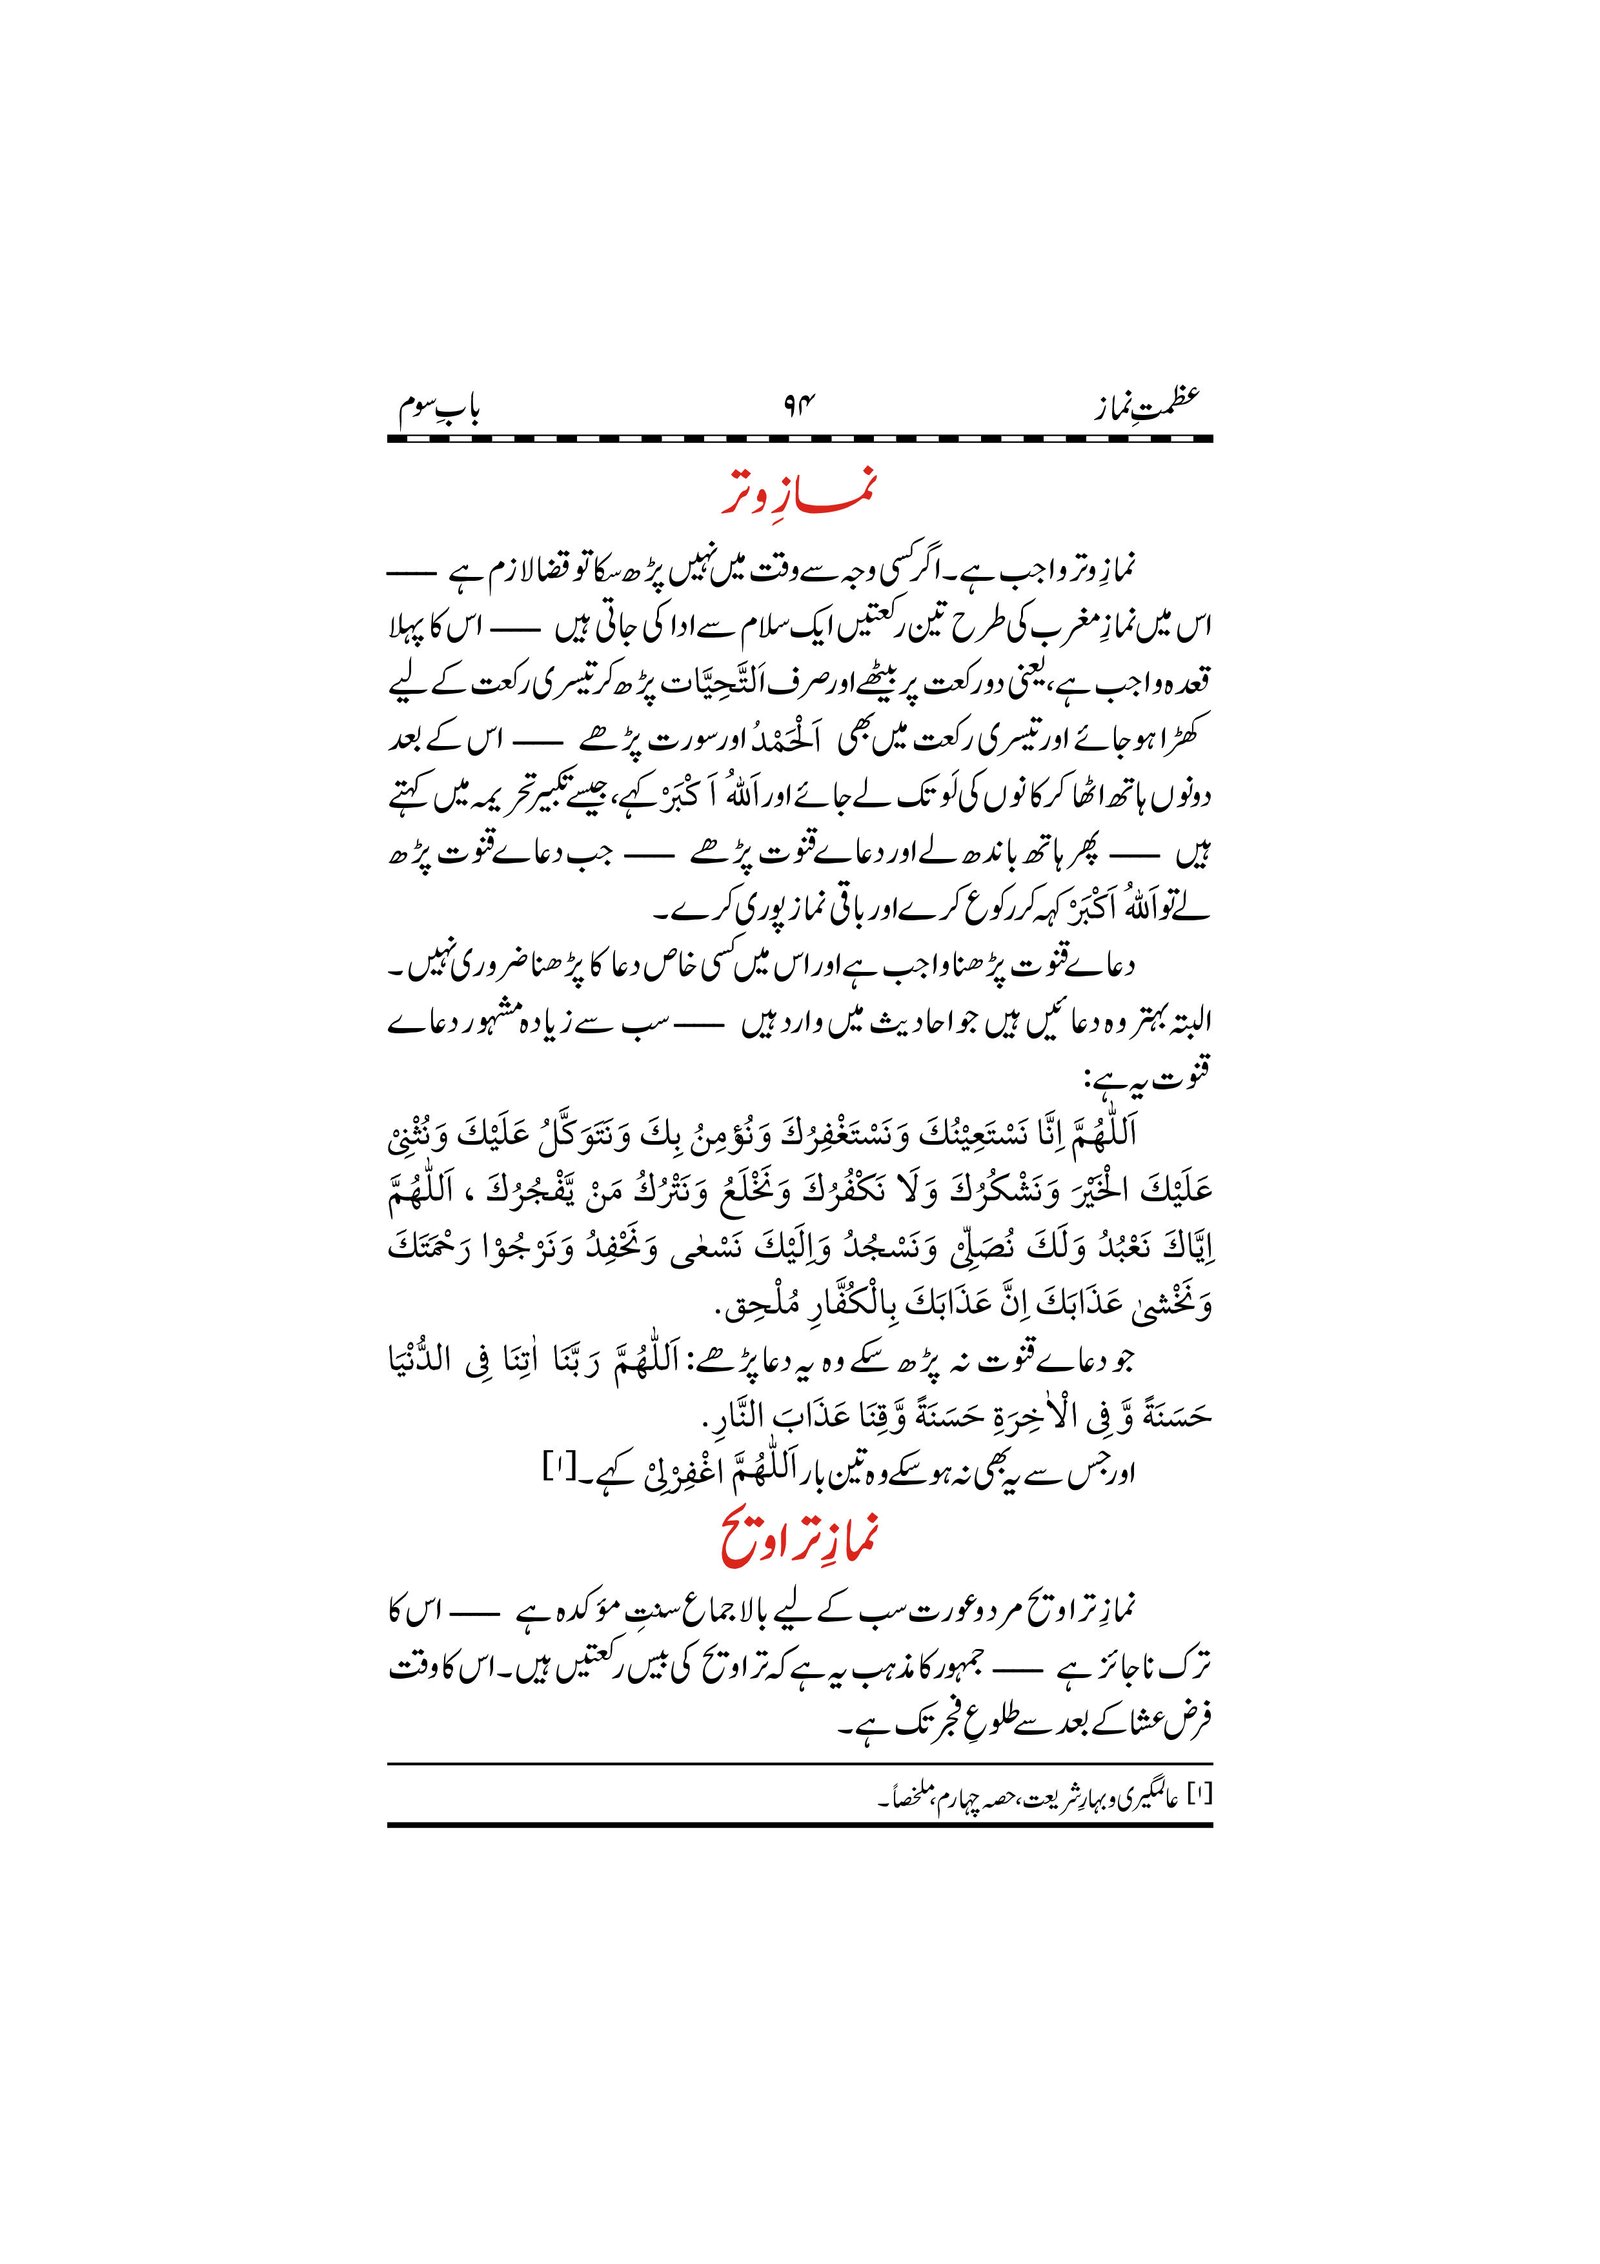 عظمتِ نماز ۹۴ بابِ سوم
نمازِ وتر
نمازِ وتر واجب ہے۔ اگر کسی وجہ سے وقت میں نہیں پڑھ سکا تو قضا لازم ہے ——
اس میں نمازِ مغرب کی طرح تین رکعتیں ایک سلام سے ادا کی جاتی ہیں —— اس کا پہلا
قعدہ واجب ہے، یعنی دو رکعت پر بیٹھے اور صرف اَلتَّحِیَّات پڑھ کر تیسری رکعت کے لیے
کھڑا ہو جائے اور تیسری رکعت میں بھی اَلْحَمْدُ اور سورت پڑھے —— اس کے بعد
دونوں ہاتھ اٹھا کر کانوں کی لَو تک لے جائے اور اَللہُ اَکْبَرْ کہے، جیسے تکبیر تحریمہ میں کہتے
ہیں —— پھر ہاتھ باندھ لے اور دعاے قنوت پڑھے —— جب دعاے قنوت پڑھ
لے تو اَللہُ اَکْبَرْ کہہ کر رکوع کرے اور باقی نماز پوری کرے۔
دعاے قنوت پڑھنا واجب ہے اور اس میں کسی خاص دعا کا پڑھنا ضروری نہیں۔
البتہ بہتر وہ دعائیں ہیں جو احادیث میں وارد ہیں —— سب سے زیادہ مشہور دعاے
قنوت یہ ہے:
اَللّٰهُمَّ اِنَّا نَسْتَعِيْنُكَ وَنَسْتَغْفِرُكَ وَنُؤْمِنُ بِكَ وَنَتَوَكَّلُ عَلَيْكَ وَنُثْنِیْ
عَلَيْكَ الْخَيْرَ وَنَشْكُرُكَ وَلَا نَكْفُرُكَ وَنَخْلَعُ وَنَتْرُكُ مَنْ يَّفْجُرُكَ ، اَللّٰهُمَّ
اِيَّاكَ نَعْبُدُ وَلَكَ نُصَلِّیْ وَنَسْجُدُ وَاِلَيْكَ نَسْعٰى وَنَحْفِدُ وَنَرْجُوْا رَحْمَتَكَ
وَنَخْشىٰ عَذَابَكَ اِنَّ عَذَابَكَ بِالْكُفَّارِ مُلْحِق.
جو دعاے قنوت نہ پڑھ سکے وہ یہ دعا پڑھے: اَللّٰهُمَّ رَبَّنَا اٰتِنَا فِی الدُّنْيَا
حَسَنَةً وَّ فِی الْاٰخِرَةِ حَسَنَةً وَّقِنَا عَذَابَ النَّارِ.
اور جس سے یہ بھی نہ ہو سکے وہ تین بار اَللّٰهُمَّ اغْفِرْلِیْ کہے۔[۱]
نمازِ تراویح
نمازِ تراویح مرد و عورت سب کے لیے بالاجماع سنتِ مؤکدہ ہے —— اس کا
ترک ناجائز ہے —— جمہور کا مذہب یہ ہے کہ تراویح کی بیس رکعتیں ہیں۔ اس کا وقت
فرض عشا کے بعد سے طلوعِ فجر تک ہے۔
[۱] عالمگیری و بہارِ شریعت، حصہ چہارم، ملخصاً۔